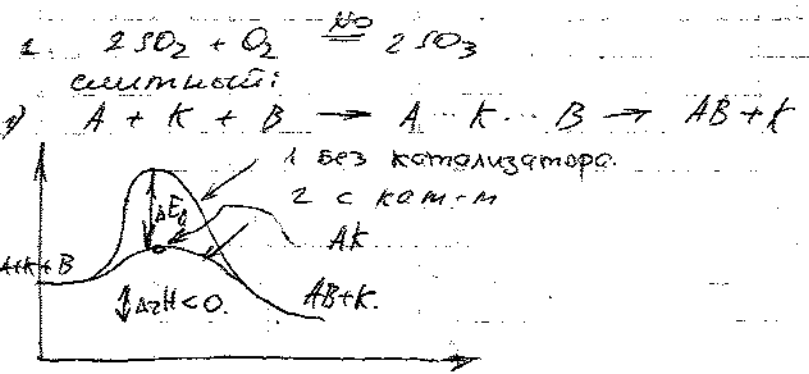 1. 2SO₂ + O₂ =NO= 2SO₃
слитный:
1) A + K + B → A ·· K ·· B → AB + K
1 без катализатора.
2 с кат-м
ΔEₐ
AK
A+K+B
ΔrH<0.
AB+K.